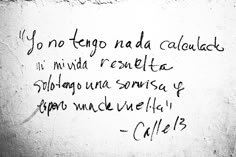 "Yo no tengo nada calculado
ni mi vida resuelta
solo tengo una sonrisa y
espero una de vuelta"
- Calle 13